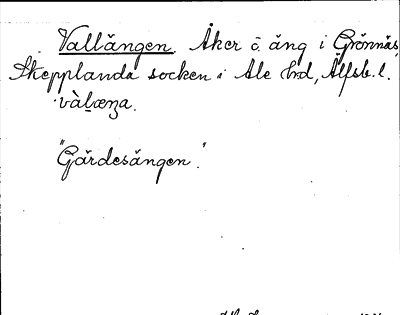 Vallängen. Åker o. äng i Grönnäs,
Skepplanda socken i Ale hrd, Älfsb. l.
"Gärdesängen".